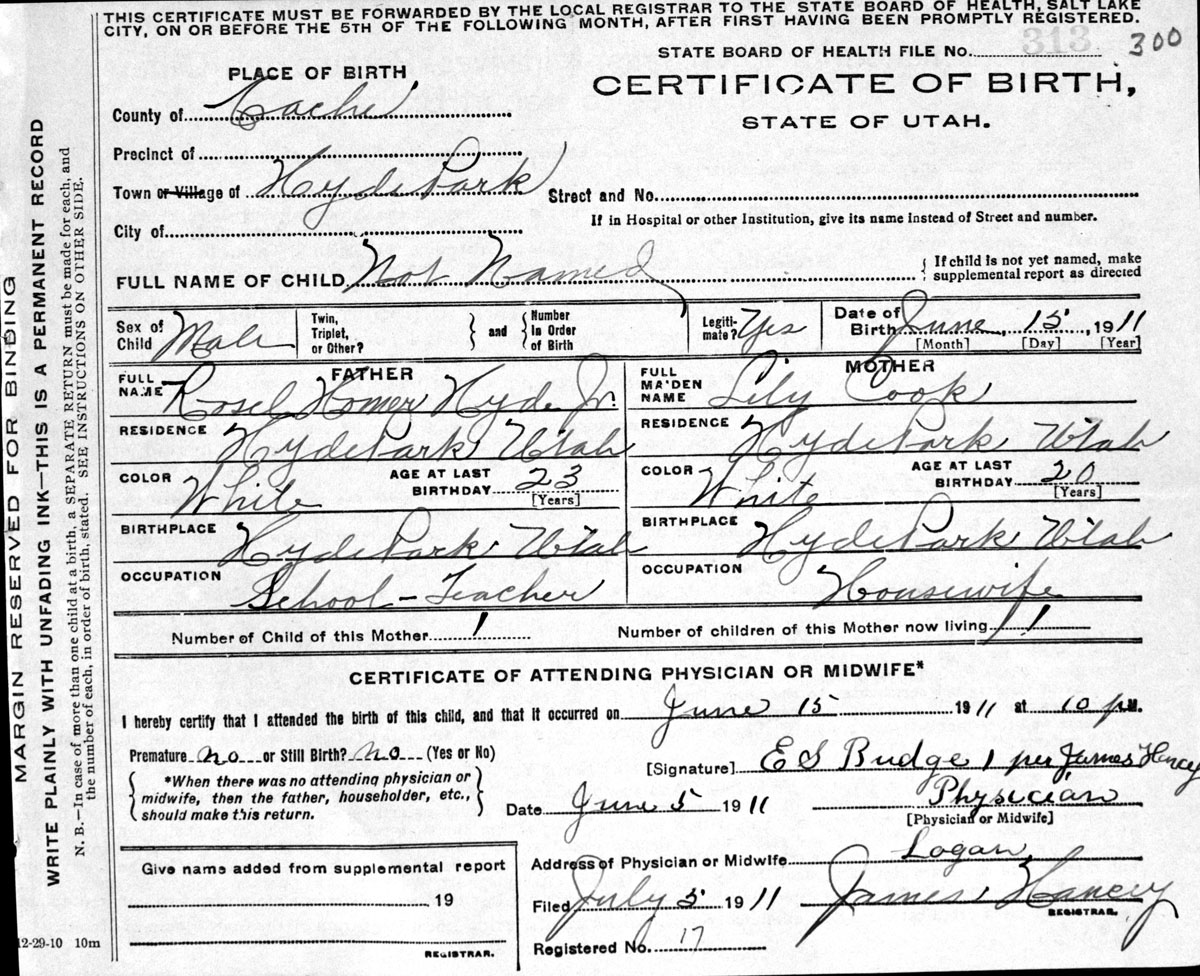 THIS CERTIFICATE MUST BE FORWARDED BY THE LOCAL REGISTRAR TO THE STATE BOARD OF HEALTH, SALT LAKE
CITY, ON OR BEFORE THE 5TH OF THE FOLLOWING MONTH, AFTER FIRST HAVING BEEN PROMPTLY REGISTERED.
STATE BOARD OF HEALTH FILE No. 313 300
PLACE OF BIRTH,
CERTIFICATE OF BIRTH,
County of Cache
STATE OF UTAH.
Precinct of
Town or Village of Hyde Park
Street and No.
If in Hospital or other Institution, give its name instead of Street and number.
City of
FULL NAME OF CHILD Not Named
If child is not yet named, make
supplemental report as directed
Sex of Child Male
Twin, Triplet, or Other?
and
Number in Order of Birth
Legiti-mate? Yes
Date of Birth June 15, 1911
[Month] [Day] [Year]
FATHER
FULL NAME Rosel Homer Hyde Jr.
RESIDENCE Hyde Park Utah
COLOR White
AGE AT LAST BIRTHDAY 23
[Years]
BIRTHPLACE Hyde Park Utah
OCCUPATION School-Teacher
MOTHER
FULL MAIDEN NAME Lily Cook
RESIDENCE Hyde Park Utah
COLOR White
AGE AT LAST BIRTHDAY 20
[Years]
BIRTHPLACE Hyde Park Utah
OCCUPATION Housewife
Number of Child of this Mother 1
Number of children of this Mother now living 1
CERTIFICATE OF ATTENDING PHYSICIAN OR MIDWIFE*
I hereby certify that I attended the birth of this child, and that it occurred on June 15 1911 at 10 p M.
Premature no or Still Birth? no (Yes or No)
*When there was no attending physician or
midwife, then the father, householder, etc.,
should make this return.
[Signature] E S Budge per James Hancy
Date June 5 1911
Physician
[Physician or Midwife]
Address of Physician or Midwife Logan
Filed July 5 1911 James Hancey
REGISTRAR.
Registered No. 17
Give name added from supplemental report
19
REGISTRAR.
12-29-10 10m
MARGIN RESERVED FOR BINDING
WRITE PLAINLY WITH UNFADING INK—THIS IS A PERMANENT RECORD
N. B.—In case of more than one child at a birth, a SEPARATE RETURN must be made for each, and
the number of each, in order of birth, stated. SEE INSTRUCTIONS ON OTHER SIDE.